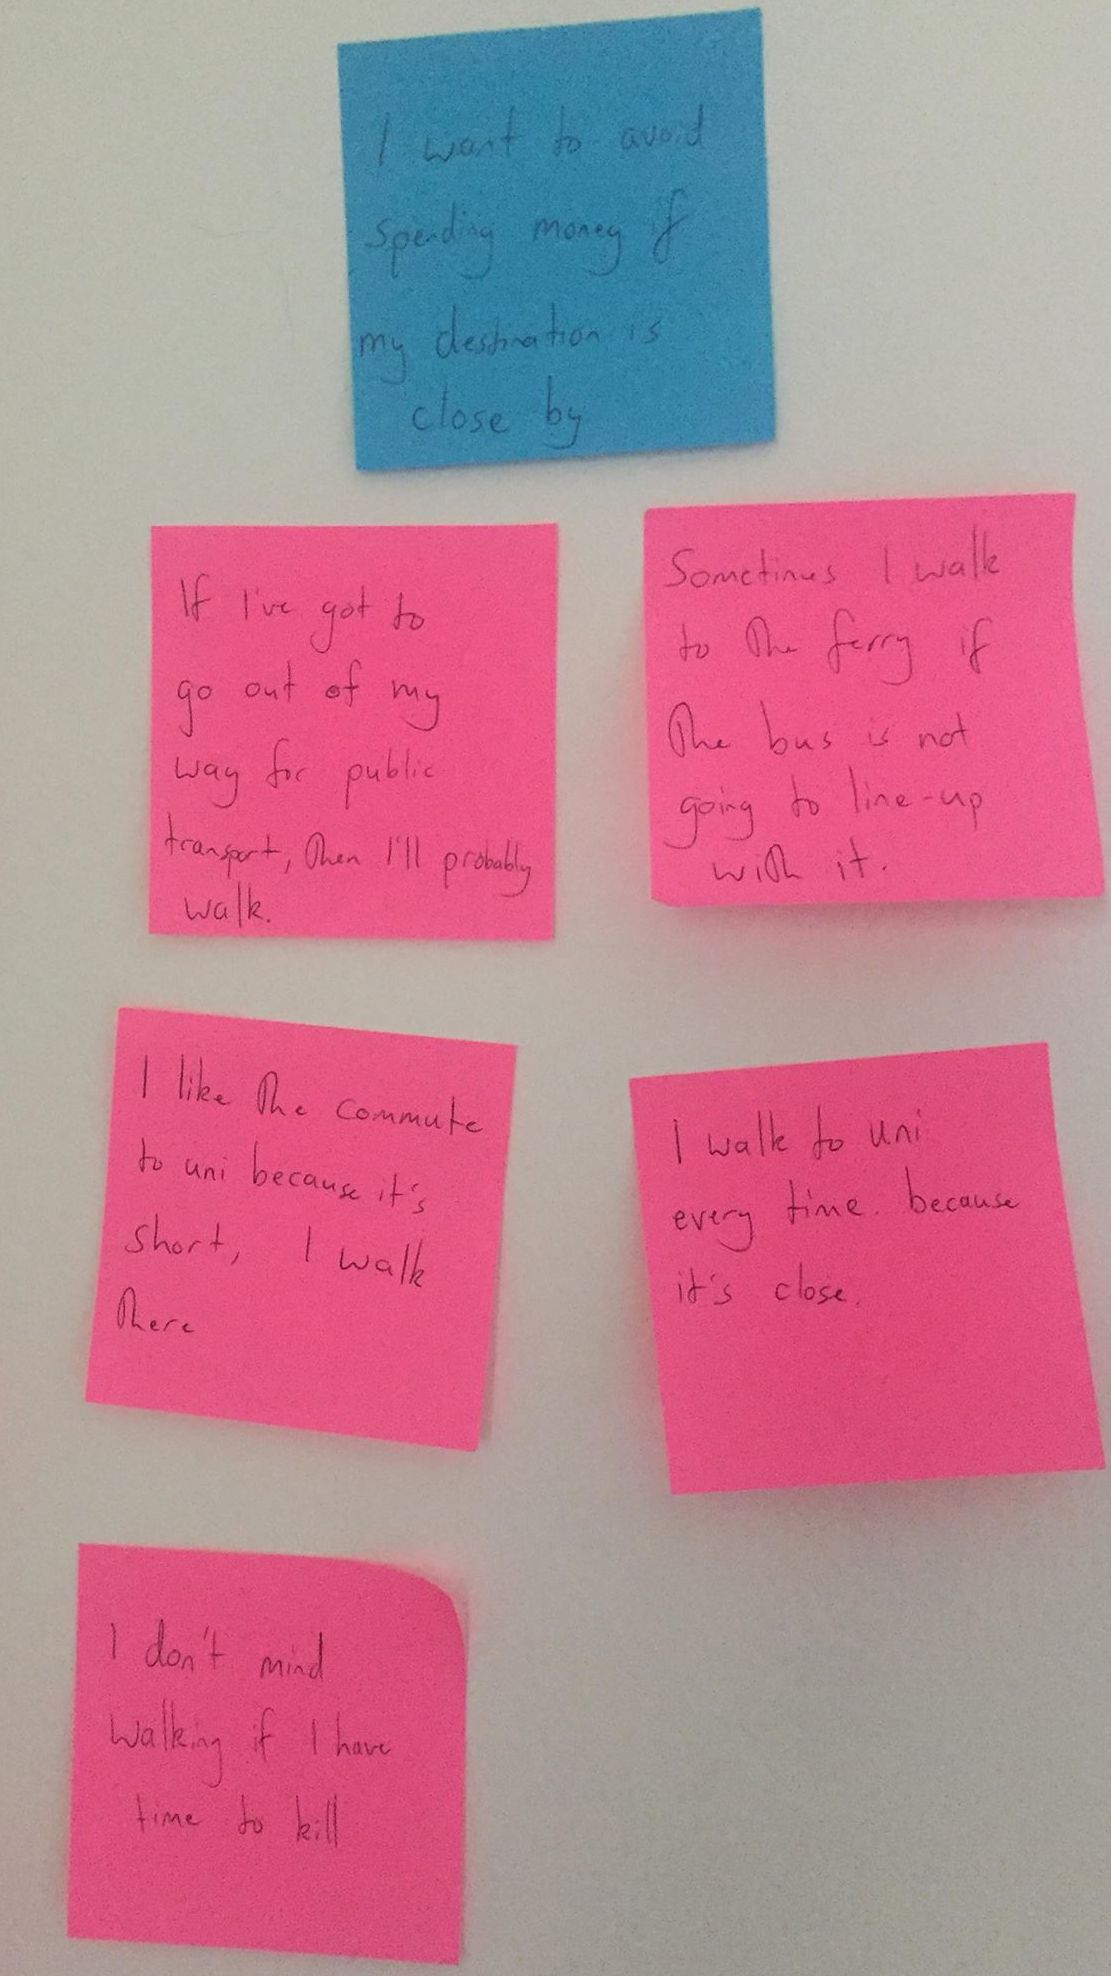 I want to avoid
spending money if
my destination is
close by
If I've got to
go out of my
way for public
transport, then I'll probably
walk.
Sometimes I walk
to the ferry if
the bus is not
going to line-up
with it.
I like the commute
to uni because it's
short, I walk
there
I walk to uni
every time. because
it's close.
I don't mind
walking if I have
time to kill